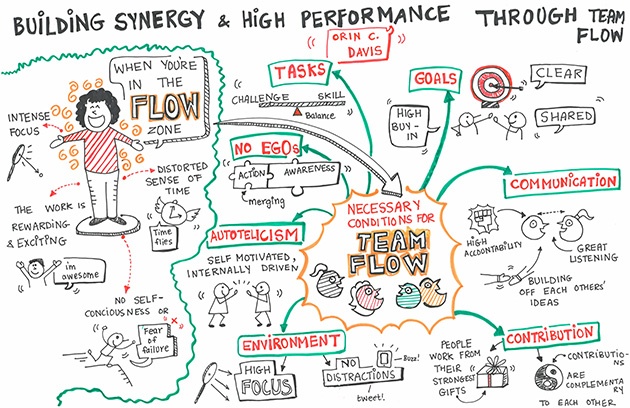 BUILDING SYNERGY & HIGH PERFORMANCE THROUGH TEAM
FLOW
ORIN C.
DAVIS
WHEN YOU'RE
IN THE
FLOW
ZONE
INTENSE
FOCUS
DISTORTED
SENSE OF
TIME
Time
flies
THE WORK IS
REWARDING
& EXCITING
im
awesome
NO SELF-
CONCIOUSNESS OR
Fear of
failure
NECESSARY
CONDITIONS FOR
TEAM
FLOW
TASKS
CHALLENGE SKILL
Balance
NO EGOs
ACTION AWARENESS
merging
AUTOTELICISM
SELF MOTIVATED,
INTERNALLY DRIVEN
ENVIRONMENT
HIGH
FOCUS
NO
DISTRACTIONS
Buzz!
tweet!
GOALS
CLEAR
SHARED
HIGH
BUY-
IN
COMMUNICATION
HIGH
ACCOUNTABILITY
GREAT
LISTENING
BUILDING
OFF EACH OTHERS'
IDEAS
CONTRIBUTION
PEOPLE
WORK FROM
THEIR
STRONGEST
GIFTS
CONTRIBUTIO-
NS
ARE
COMPLEMENTA
RY
TO EACH OTHER